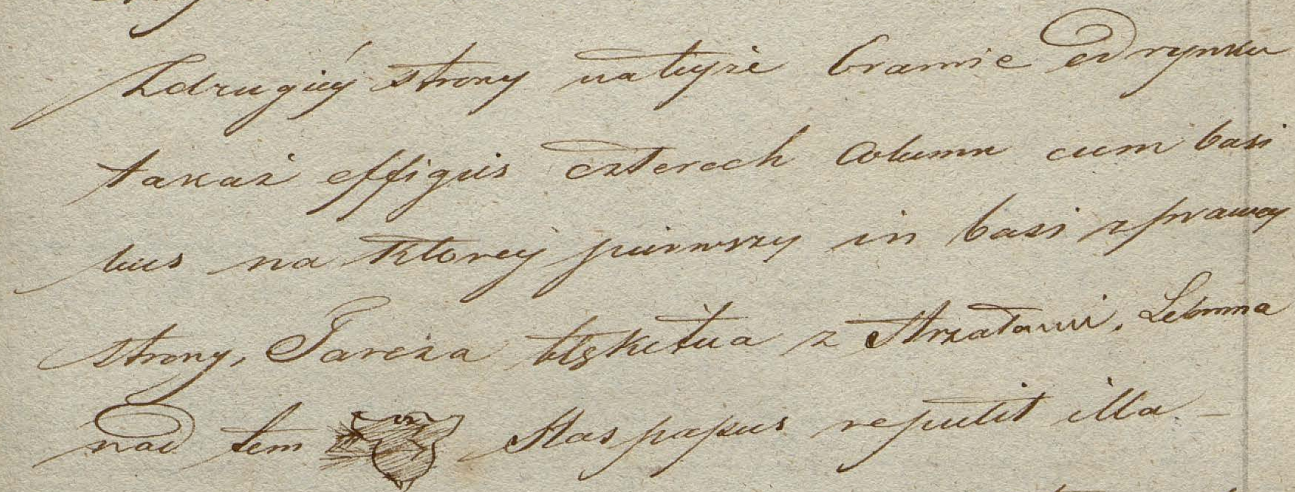 Zdrugiéy strony na teyże bramie od rynku
takaż effigies czterech Column cum basi
bus na ktorey pierwszy in basi z prawey
strony, Tarcza błękitna z Strzałami,
nad tem Has papus repulit illa –